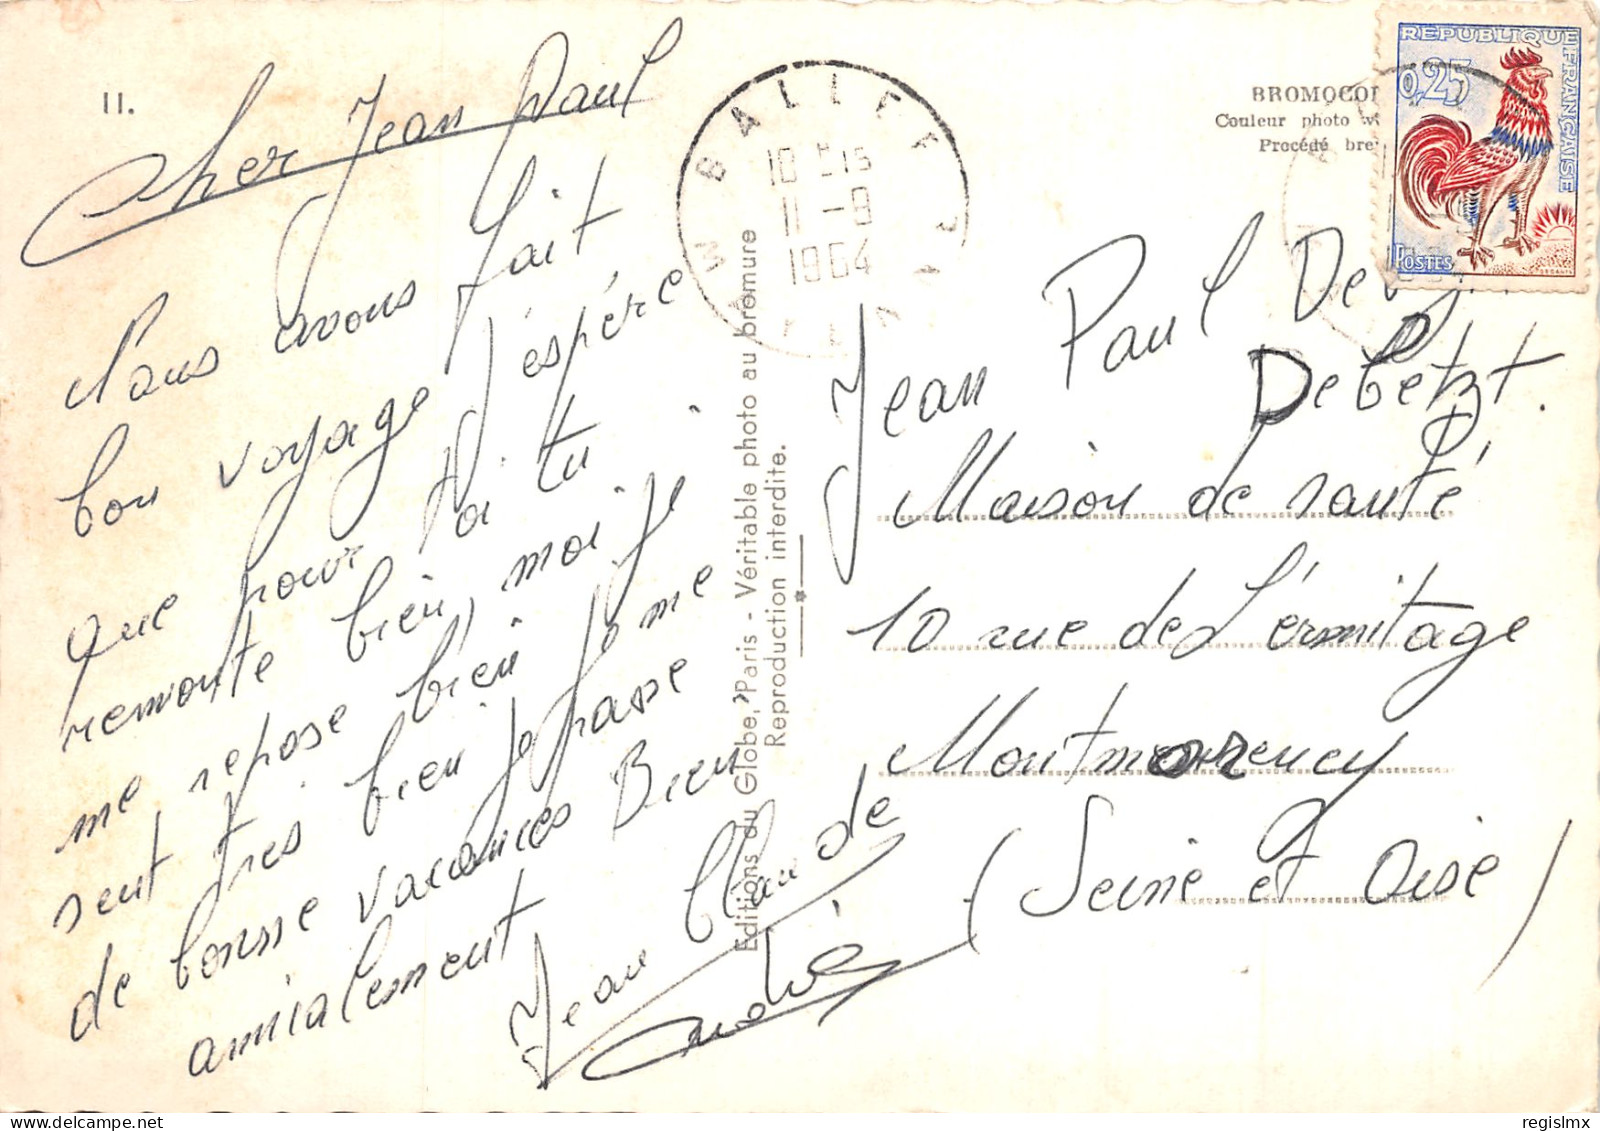 11.
Cher Jean Paul
Nous avons fait
bon voyage j'espère
que pour toi tu
remonte bien, moi je
me repose bien je me
sent très bien je passe
de bonne vacances Bien
amicalement
Jean Claude
André
WIMBALLET
10 H 15
11 -8
1964
Editions du Globe, Paris - Véritable photo au bromure
Reproduction interdite.
BROMOCOL
Couleur photo v
Procédé bre
REPUBLIQUE FRANÇAISE
0,25
POSTES
DECARIS
Jean Paul De
Debetzt.
Maison de santé
10 rue de L'érmitage
Montmorrency
(Seine et Oise)
regislmx